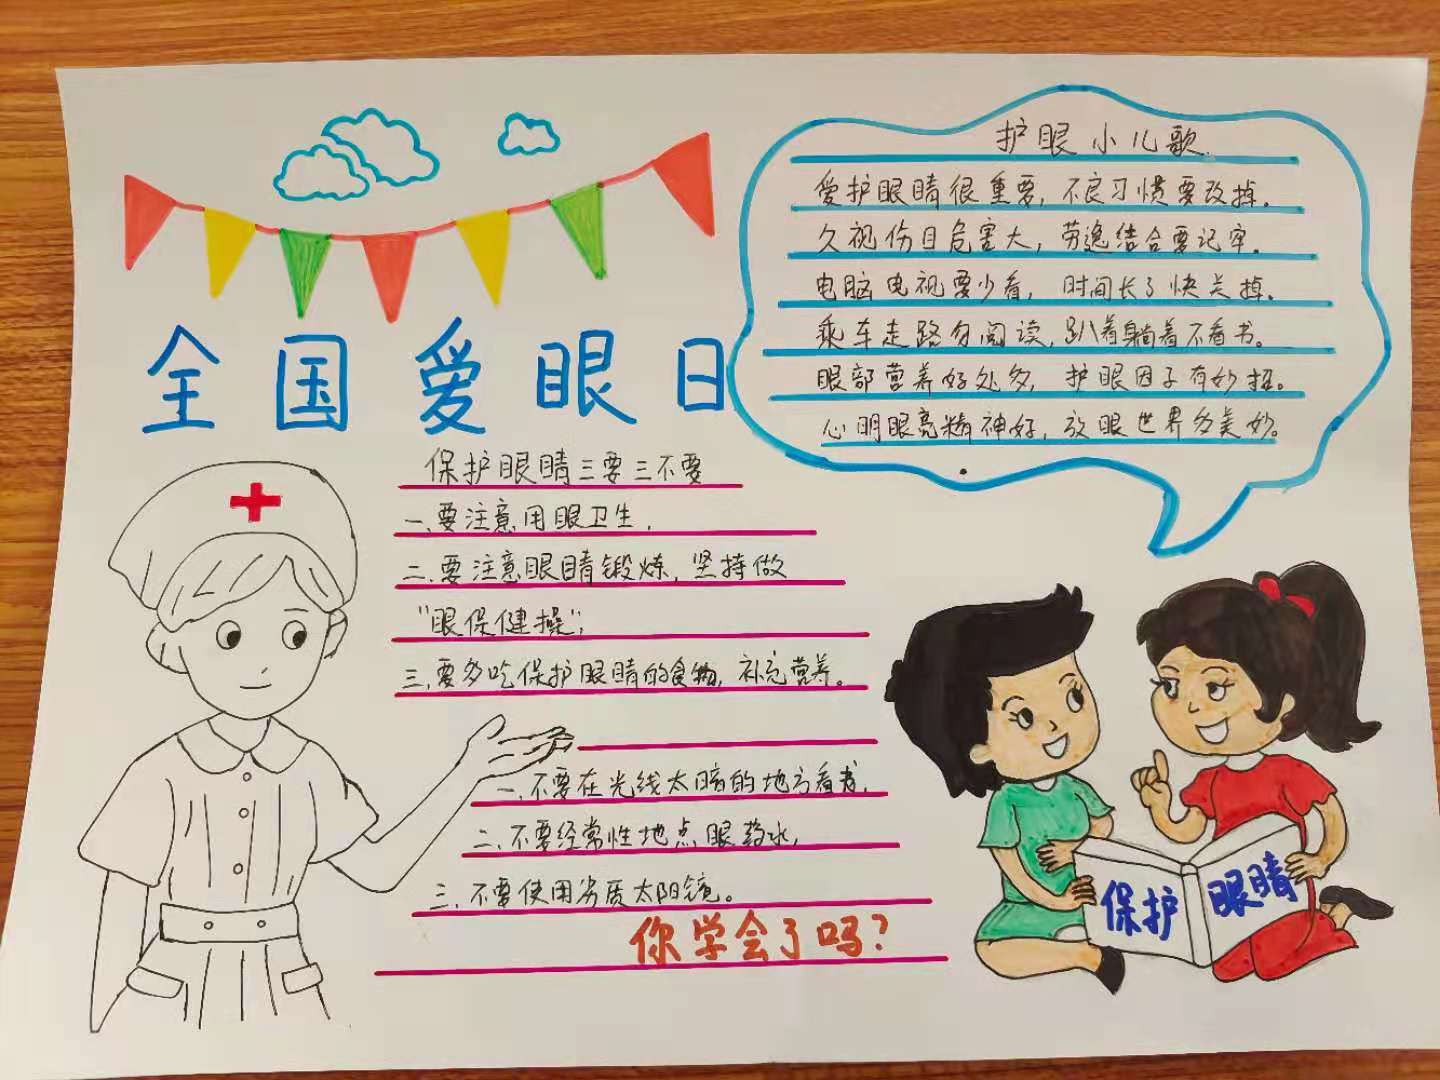 全国爱眼日
保护眼睛三要三不要
一、要注意用眼卫生,
二、要注意眼睛锻炼,坚持做
“眼保健操”;
三、要多吃保护眼睛的食物,补充营养。
一、不要在光线太暗的地方看书,
二、不要经常性地点眼药水,
三、不要使用劣质太阳镜。
你学会了吗?
护眼小儿歌
爱护眼睛很重要,不良习惯要改掉。
久视伤目危害大,劳逸结合要记牢。
电脑电视要少看,时间长了快关掉。
乘车走路勿阅读,趴着躺着不看书。
眼部营养好处多,护眼因子有妙招。
心明眼亮精神好,放眼世界多美妙。
保护
眼睛